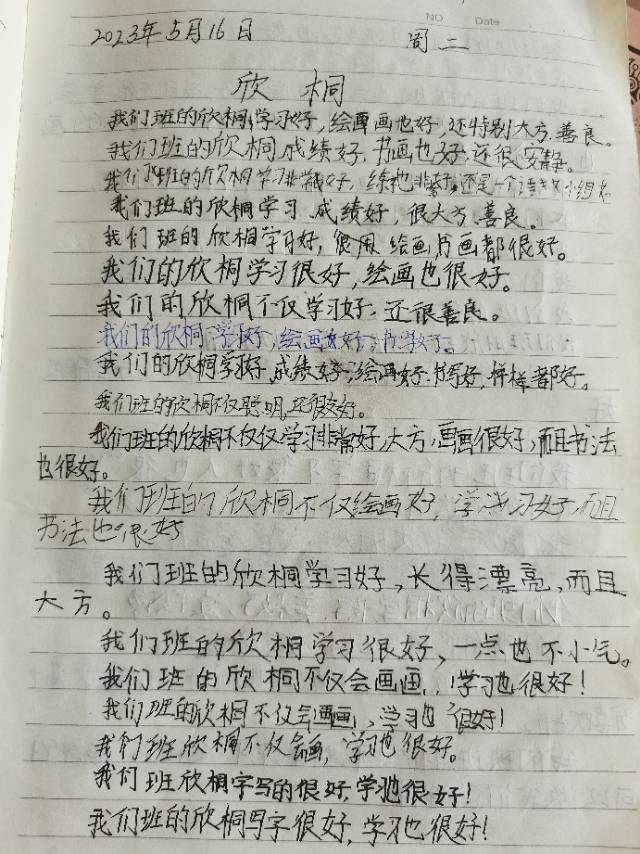 NO Date
2023年5月16日 周二
欣桐
我们班的欣桐,学习好,绘画画也好,还特别大方善良。
我们班的欣桐成绩好,书画也好,还很安静。
我们班的欣桐学习非常好,也非好,还是一个语文小组长
我们班的欣桐学习成绩好,很大方善良。
我们班的欣桐学习好,很用绘画书画都很好。
我们的欣桐学习很好,绘画也很好。
我们的欣桐不仅学习好.还很善良。
我们的欣桐学习好,绘画好,书
我们的欣桐学习好,成绩好,绘画好.书写好,样样都好。
我们班的欣桐不仅聪明,还很友好。
我们班的欣桐不仅仅学习非常好,大方,画画很好,而且书法
也很好。
我们班的欣桐不仅绘画好,学习好,而且
书法也很好
我们班的欣桐学习好,长得漂亮,而且
大方。
我们班的欣桐学习很好,一点也不小气。
我们班的欣桐不仅会画画,学习也很好!
我们班的欣桐不仅会画画,学习也很好!
我们班欣桐不仅会画,学习也很好。
我们班欣桐字写的很好,学习也很好!
我们班的欣桐写字很好,学习也很好!